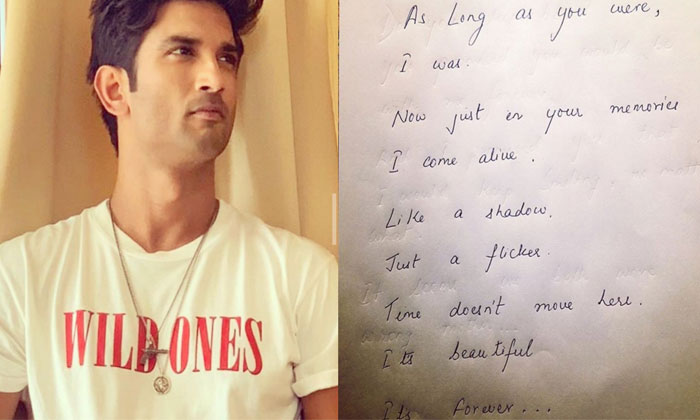 WILD ONES
As Long as you were,
I was.
Now just in your memories
I come alive.
Like a shadow.
Just a flicker.
Time doesn't move here.
Its beautiful
Its forever...